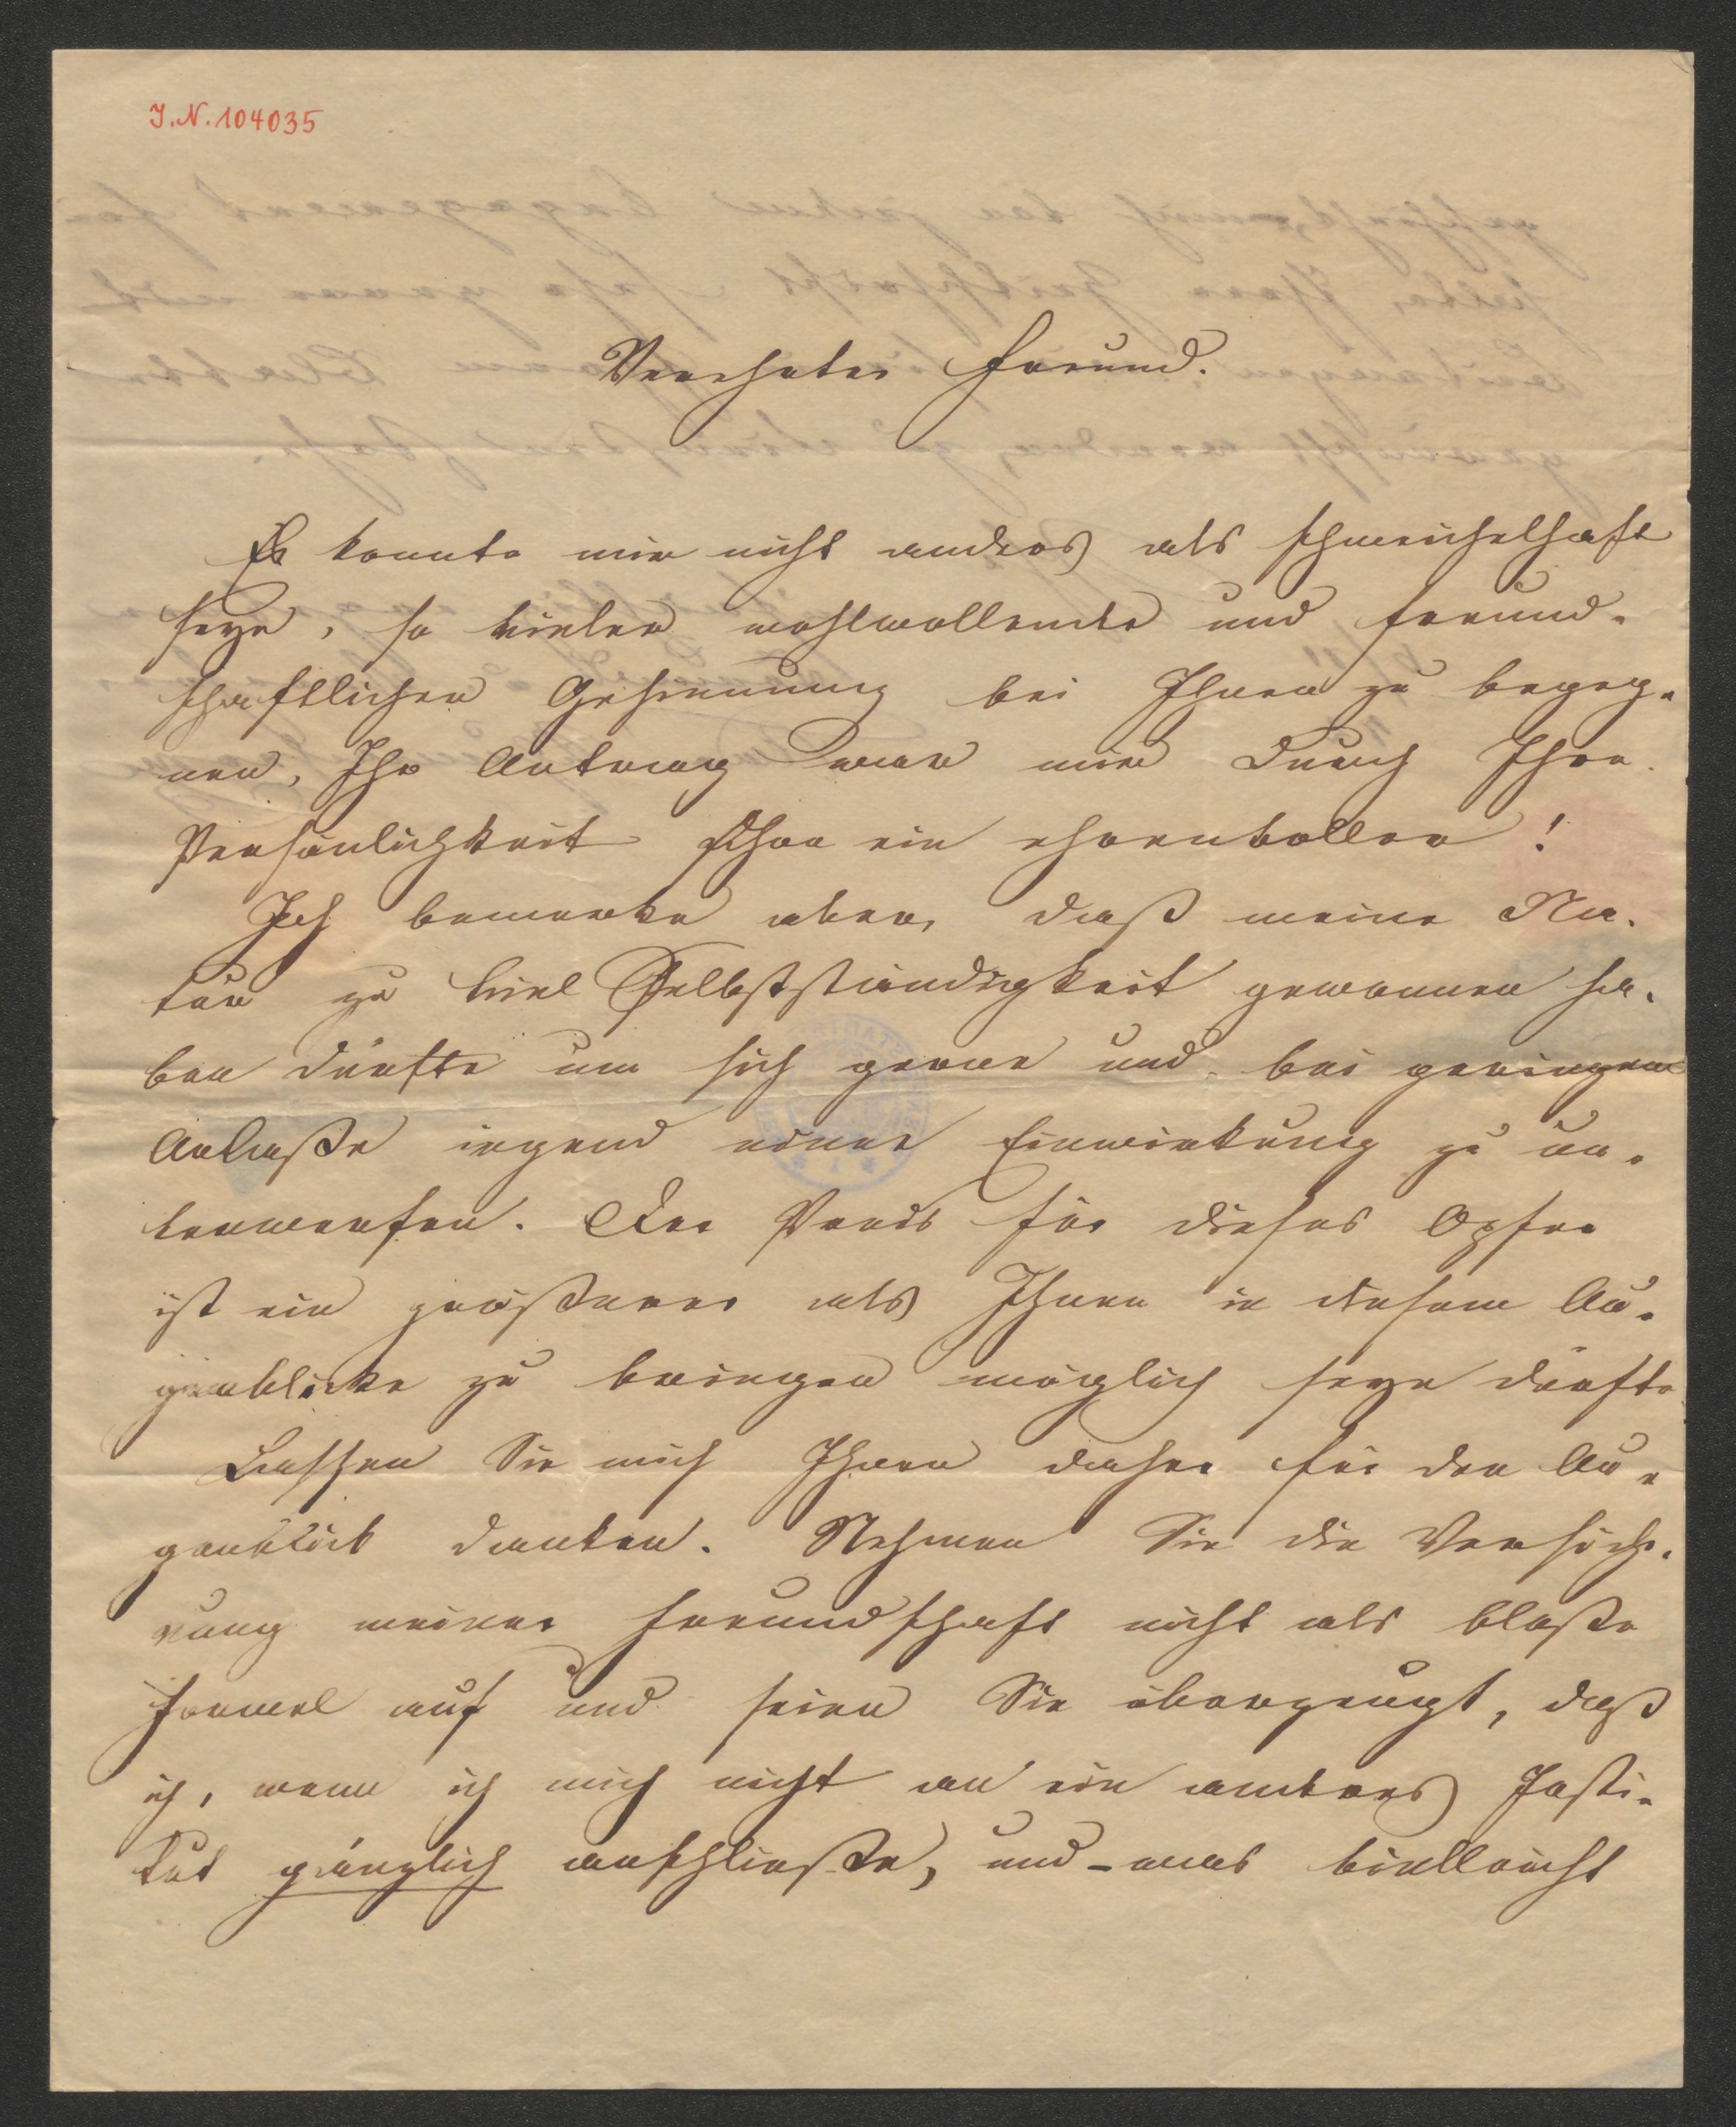 J.N. 104035
Verehrter Freund.
Es konnte mir nicht anders als schmeichelhaft
seyn, so vieler wohlwollender und freund-
schaftlicher Gesinnung bei Ihnen zu begeg-
nen, Ihr Antrag war mir durch Ihre
Persönlichkeit schon ein ehrenvoller!
Ich bemerke aber, daß meine Na-
tur zu viel Selbstständigkeit gewonnen ha-
ben dürfte um sich gerne und bei geringem
Anlaße irgend einer Einwirkung zu un-
terwerfen. Der Preis für dieses Opfer
ist ein größerer als Ihnen in diesem Au-
genblicke zu bringen möglich seyn dürfte
Lassen Sie mich Ihnen daher für den Au-
genblick danken. Nehmen Sie die Versiche-
rung meiner Freundschaft nicht als bloße
Formel auf und seien Sie überzeugt, daß
ich, wenn ich mich nicht an ein anderes Insti-
tut gänzlich anschließe, und - was vielleicht